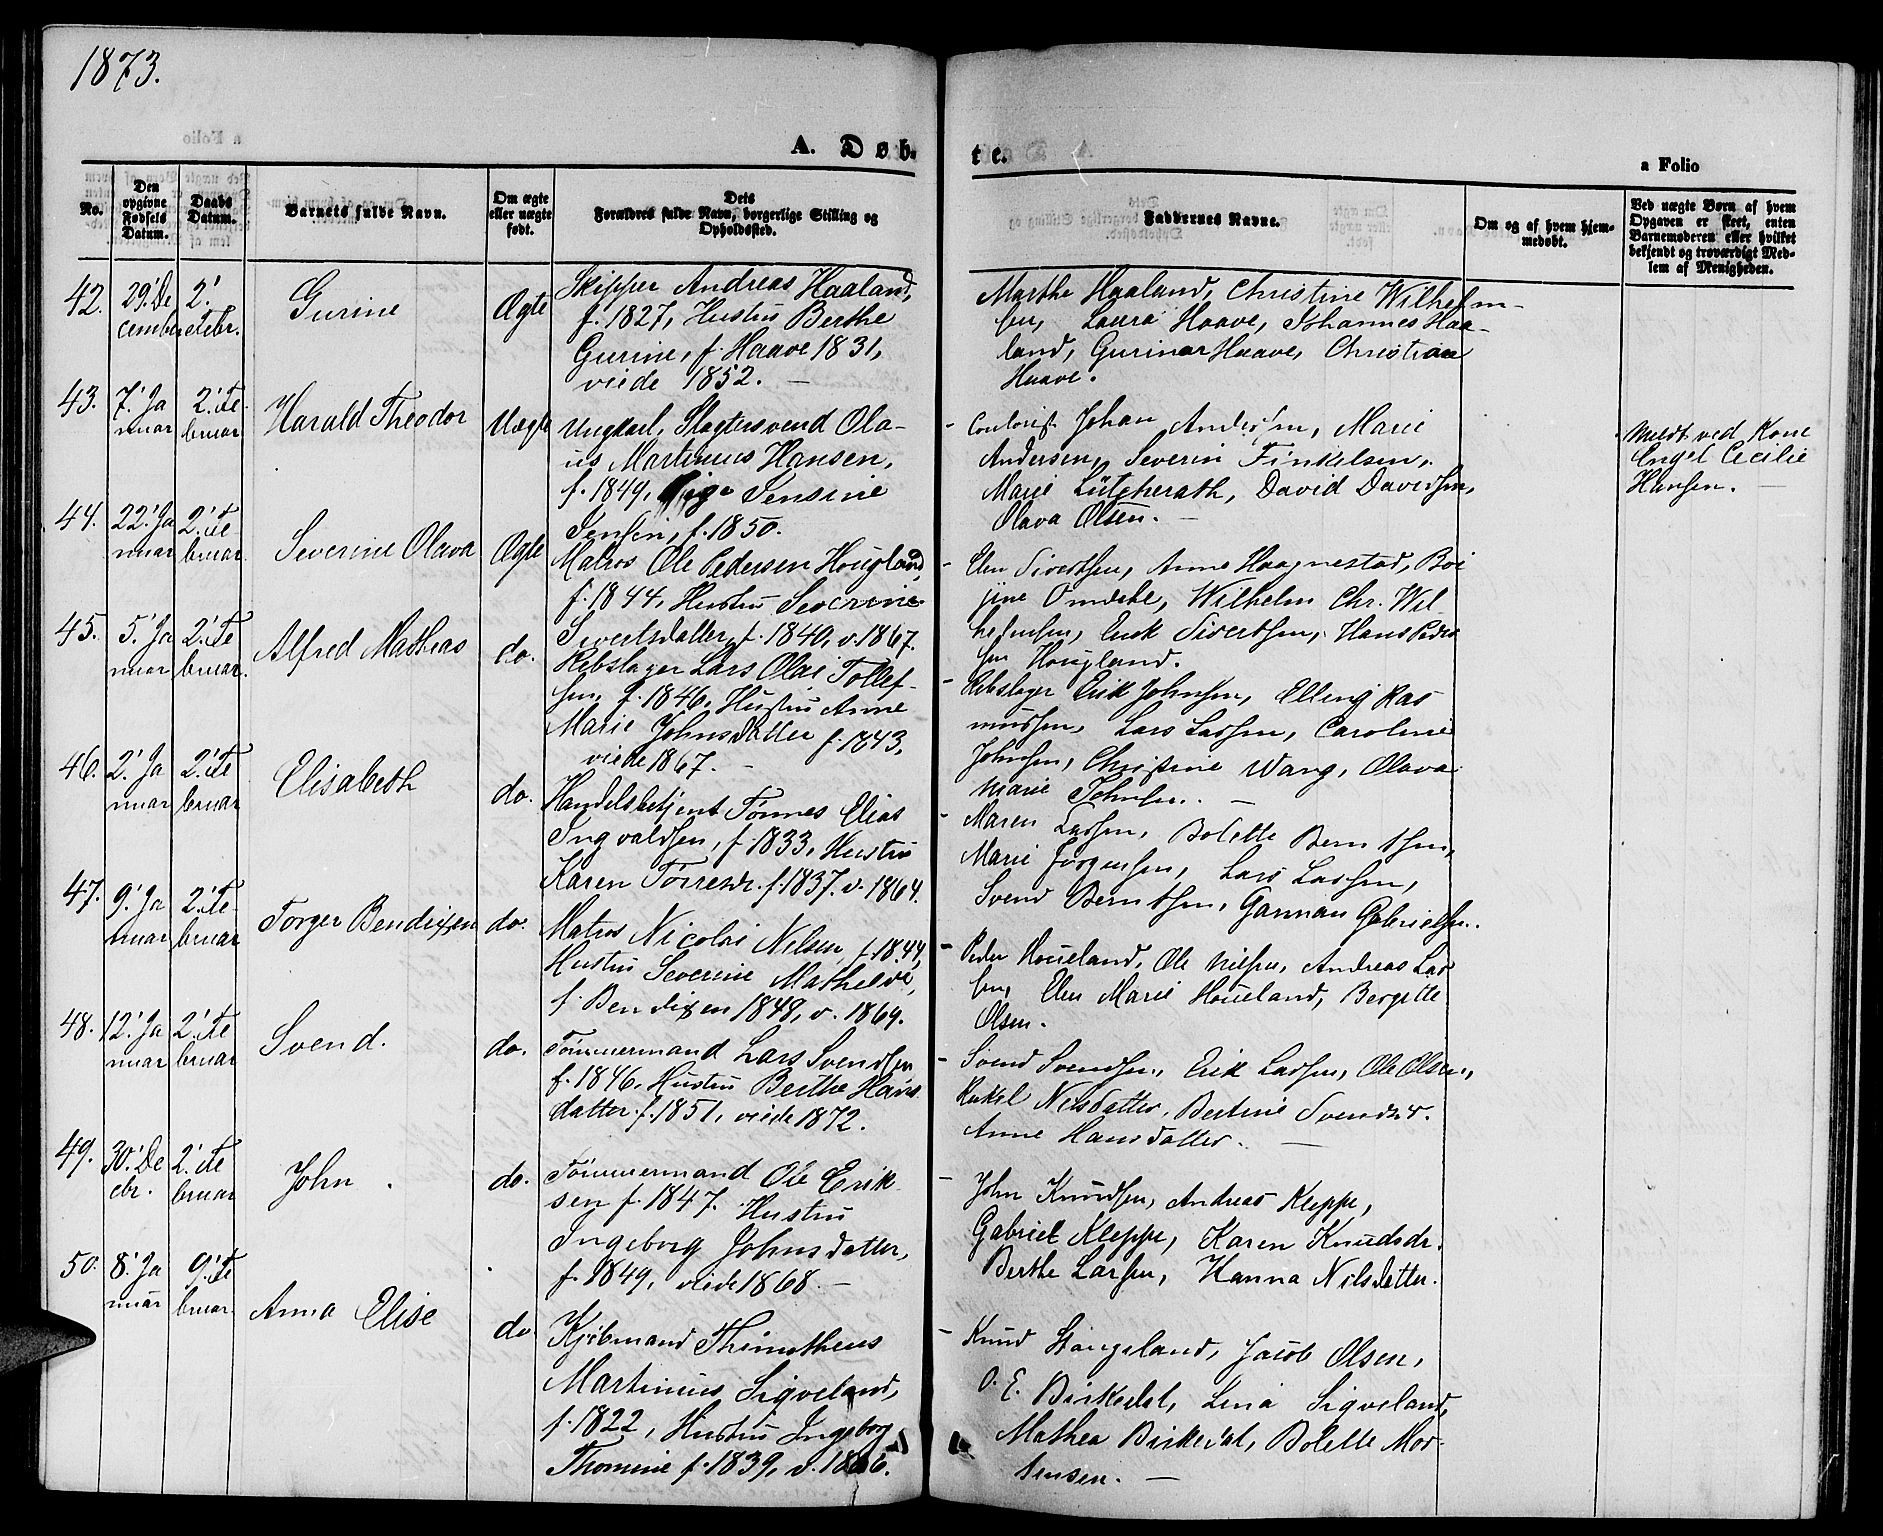 1873.
A. Døb-
te.
a Folio
No.
Den opgivne Fødsels Datum.
Daabs Datum.
Barnets fulde Navn.
Om ægte eller uægte født.
Dets Forældres fulde Navn, borgerlige Stilling og Opholdssted.
Faddernes Navne.
Om og af hvem hjem-
medøbt.
Ved uægte Børn af hvem
Opgaven er skeet, enten
Barnemoderen eller hvilket
bekjendt og troværdigt Med-
lem af Menigheden.
42. 29' De
cember
2'
Febr.
Gurine
Ægte
Skipper Andreas Haaland,
f. 1827, Hustru Berthe
Gurine, f. Haave 1831,
viede 1852. —
Marthe Haaland, Christine Wilhelm-
sen, Laura Haave, Johannes Haa-
land, Guriner Haave, Christian
Haave.
43. 7' Ja
nuar
2' Fe
bruar
Harald Theodor
Uægte
Ungkarl, Slagtersvend Ola-
us Martinius Hansen,
f. 1849, Pige Jensine
Jensen, f. 1850.
- Contorist Johan Andersen, Marie
Andersen, Severin Finkelsen,
Marie Lütcherath, David Davidsen,
Olava Olsen. —
Meldt ved Kone
Engel Cecilie
Hansen. —
44. 22' Ja
nuar
2' Fe
bruar
Severine Olava
Ægte
Matros Ole Pedersen Hougland,
f. 1844, Hustru Severine
Sivertsdatter, f. 1840, v. 1867.
- Elen Sivertsen, Anne Haagnestad,
Wilhelm Chr. Wil-
helmsen, Erik Sivertsen, Hans Peder
sen Hougland.
45. 5' Ja
nuar
2' Fe
bruar.
Alfred Mathias
do.
Rebslager Lars Olai Tollef-
sen, f. 1846, Hustru Anne
Marie Johnsdatter f. 1843,
viede 1867. —
- Rebslager Erik Johnsen, Elling Ras
mussen, Lars Larsen, Caroline
Johnsen, Christine Wang, Olava
Marie Johnsen. —
46. 2' Ja
nuar
2' Fe
bruar
Elisabeth
do.
Handelsbetjent Tønnes Elias
Ingvaldsen, f. 1833, Hustru
Karen Torresdr. f. 1837. v. 1864.
- Maren Larsen, Bolette Berntsen,
Marie Jørgensen, Lars Larsen,
Svend Berntsen, Garman Gabrielsen.
47. 9' Ja
nuar
2' Fe
bruar
Torger Bendixen
do.
Matros Nicolai Nilsen, f. 1844,
Hustru Severine Mathelde,
f. Bendixen 1848, v. 1869.
- Peder Houeland, Ole Nilsen, Andreas Lar
sen, Elen Marie Houeland, Bergitte
Olsen.
48. 12' Ja
nuar
2' Fe
bruar
Svend.
do.
Tømmermand Lars Svendsen
f. 1846, Hustru Berthe Hans
datter f. 1851, viede 1872.
- Svend Svendsen, Erik Larsen, Ole Olsen,
Rakel Nilsdatter, Bertine Svendsdr.
Anne Hansdatter. —
49. 30' De
cbr.
2' Fe
bruar
John .
do.
Tømmermand Ole Erik
sen f. 1847. Hustru
Ingeborg Johnsdatter,
f. 1849, viede 1868. —
- John Knudsen, Andreas Kleppe,
Gabriel Kleppe, Karen Knudsdr.
Berthe Larsen, Hanna Nilsdatter.
50. 8' Ja
nuar
9' Fe
bruar.
Anna Elise
do
Kjøbmand Thimotheus
Martinius Sigveland,
f. 1822, Hustru Ingeborg
Thomine f. 1839, v. 1866.
- Knud Stangeland, Jacob Olsen,
O. E. Birkedal, Lena Sigveland,
Mathea Birkedal, Bolette Mor-
tensen. —